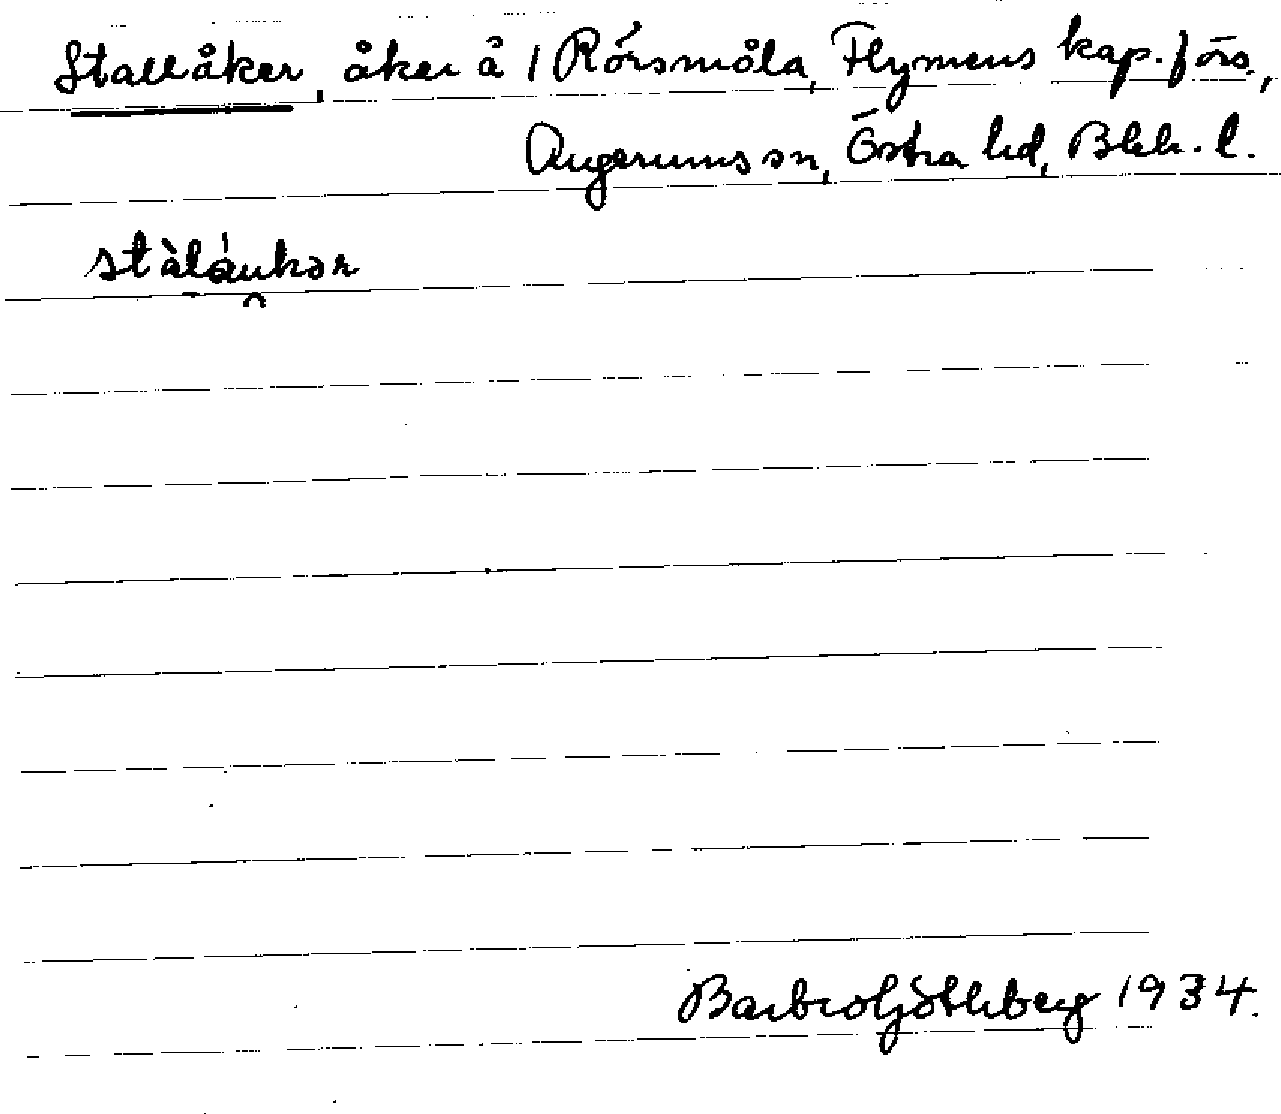 Stallåker, åker å 1 Rörsmåla, Flymens kap.förs.,
Augerums sn, Östra hd, Blek. l.
stàláu̯kər
Barbro Götheberg 1934.